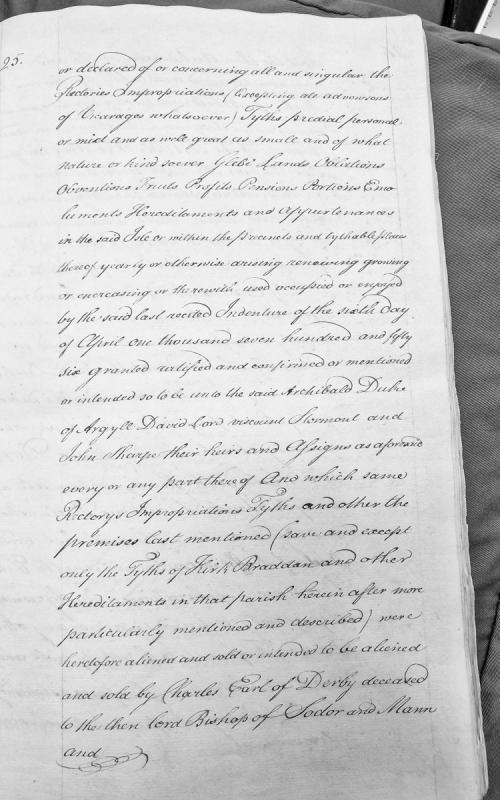 25.
or declared of or concerning all and singular the
Rectories Impropriations (Excepting all advowsons
of Vicarages whatsoever) Tyths predial personal
or mixt and as well great as small and of what
nature or kind soever Glebe Lands Oblations
Obventions Fruits Profits Pensions Portions Emo
luments Hereditaments and Appurtenances
in the said Isle or within the precincts and tythable places
thereof yearly or otherwise arising renewing growing
or encreasing or therewith used occupied or enjoyed
by the said last recited Indenture of the sixth day
of April one thousand seven hundred and fifty
six granted ratified and confirmed or mentioned
or intended so to be unto the said Archibald Duke
of Argyll David Lord viscount Stormont and
John Sharpe their heirs and Assigns as aforesaid
every or any part thereof And which same
Rectorys Impropriations Tyths and other the
premises last mentioned (save and except
only the Tyths of Kirk Braddan and other
Hereditaments in that parish herein after more
particularly mentioned and described) were
heretofore aliened and sold or intended to be aliened
and sold by Charles Earl of Derby deceased
to the then lord Bishop of Sodor and Mann
and